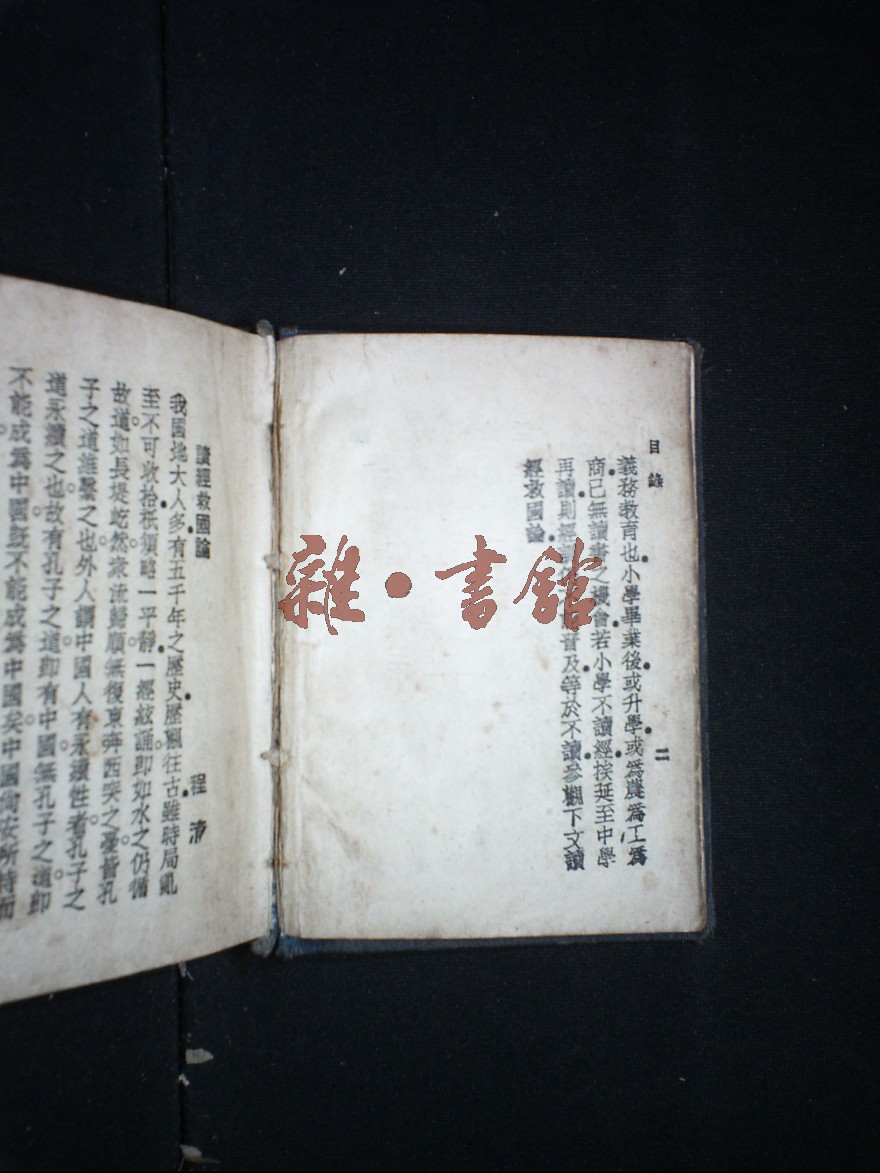 目錄
義務教育也小學畢業後或升學或為農為工為
商已無讀書之機會若小學不讀經挨延至中學
再讀則經 普及等於不讀參觀下文讀
經救國論
二
雜·書館
讀經救國論
程淯
我國地大人多有五千年之歷史歷觀往古雖時局亂
至不可收拾祇須略一平靜一經絃誦卽如水之仍循
故道如長堤屹然衆流歸順無復東奔西突之憂皆孔
子之道維繫之也外人謂中國人有永續性者孔子之
道永續之也故有孔子之道卽有中國無孔子之道卽
不能成為中國旣不能成為中國矣中國尙安所恃而